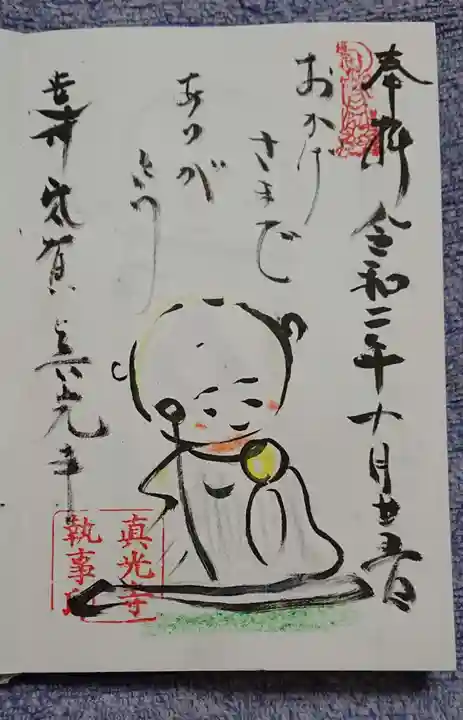 奉拝 令和二年十月廿五日
おかげ
さまで
ありが
とう
真光寺
真光寺
執事印